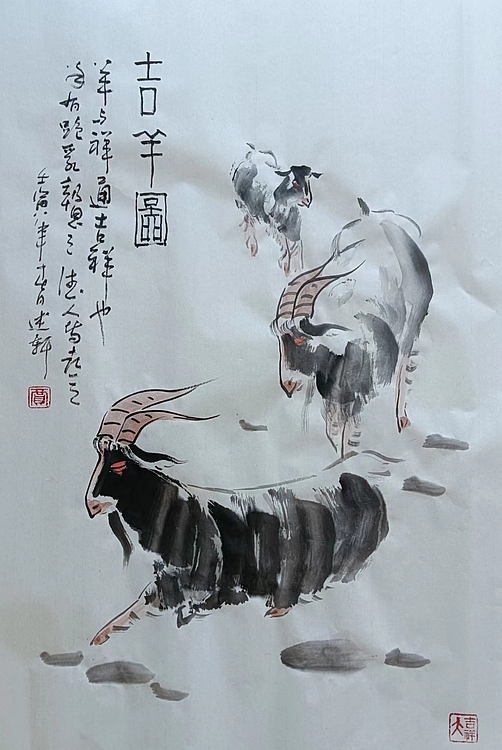 吉羊圖
羊与祥通吉祥也
羊有跪乳報恩之德人皆喜之
壬寅年
大吉祥